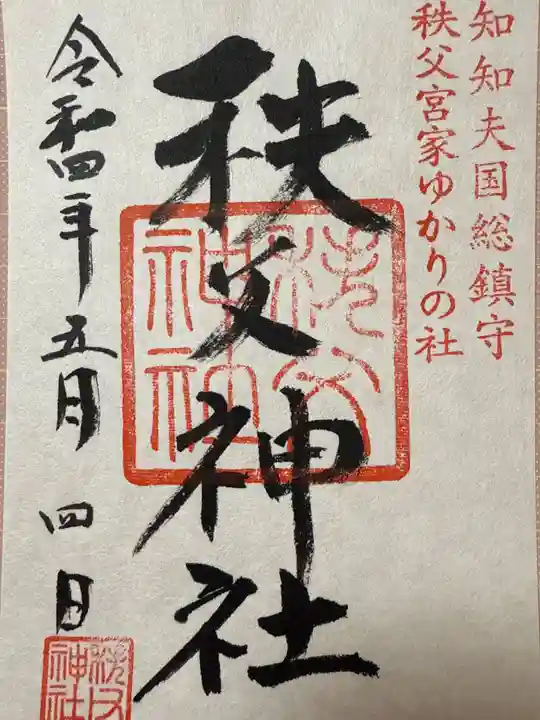 知知夫国総鎮守
秩父宮家ゆかりの社
秩父神社
秩父神社
令和四年五月四日
秩父神社